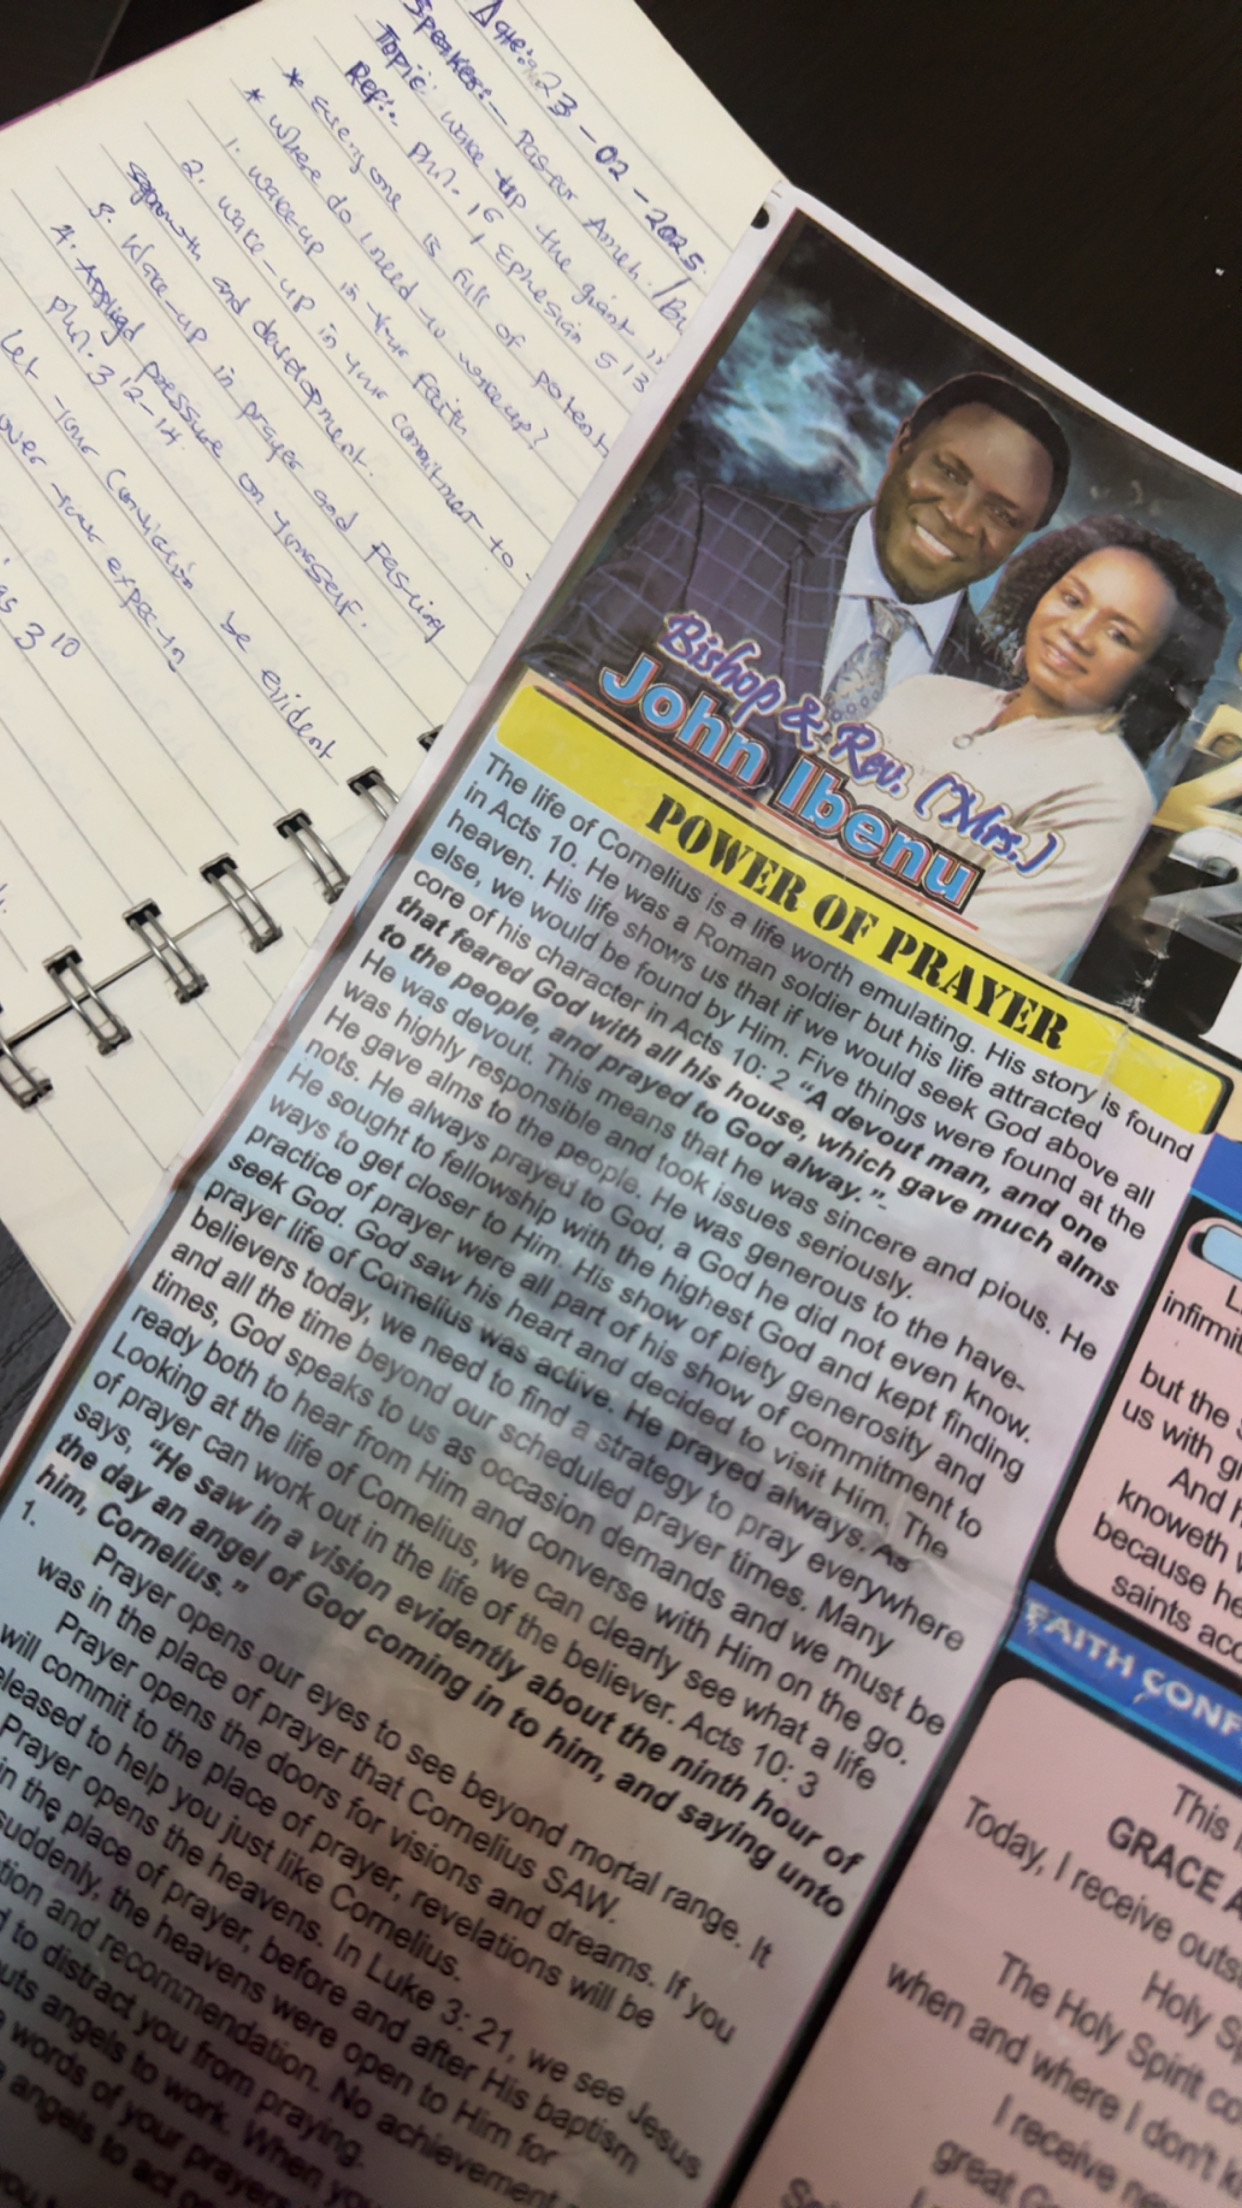 Date:- 23-02-2025.
Speaker:- Pastor Ameh.
Topic: wake-up the giant
Ref:- Phil. 1 6, Ephesian 5 13
* Everyone is full of potent
* where do I need to wakeup?
1. wake-up in your faith
2. wake-up in your commitment to
and development.
3. Wake-up in prayer and fasting
4. Applied pressure on yourself.
Phil. 3 12-14
Let your Conviction be evident
over your
3 10
Bishop & Rev. (Mrs.)
John Ibenu
POWER OF PRAYER
The life of Cornelius is a life worth emulating. His story is found
in Acts 10. He was a Roman soldier but his life attracted
heaven. His life shows us that if we would seek God above all
else, we would be found by Him. Five things were found at the
core of his character in Acts 10: 2 “A devout man, and one
that feared God with all his house, which gave much alms
to the people, and prayed to God alway.”
He was devout. This means that he was sincere and pious. He
was highly responsible and took issues seriously.
He gave alms to the people. He was generous to the have-
nots. He always prayed to God, a God he did not even know.
He sought to fellowship with the highest God and kept finding
ways to get closer to Him. His show of piety generosity and
practice of prayer were all part of his show of commitment to
seek God. God saw his heart and decided to visit Him. The
prayer life of Cornelius was active. He prayed always. As
believers today, we need to find a strategy to pray everywhere
and all the time beyond our scheduled prayer times. Many
times, God speaks to us as occasion demands and we must be
ready both to hear from Him and converse with Him on the go.
Looking at the life of Cornelius, we can clearly see what a life
of prayer can work out in the life of the believer. Acts 10: 3
says, “He saw in a vision evidently about the ninth hour of
the day an angel of God coming in to him, and saying unto
him, Cornelius.”
1.
Prayer opens our eyes to see beyond mortal range. It
was in the place of prayer that Cornelius SAW.
Prayer opens the doors for visions and dreams. If you
will commit to the place of prayer, revelations will be
eleased to help you just like Cornelius.
Prayer opens the heavens. In Luke 3: 21, we see Jesus
in the place of prayer, before and after His baptism
suddenly, the heavens were open to Him for
tion and recommendation. No achievement
d to distract you from praying.
uts angels to work. When you
words of your prayer
angels to act
L
infirmit
but the
us with gr
And h
knoweth w
because he
saints acc
FAITH CONF
This
GRACE A
Today, I receive outs
Holy Sp
The Holy Spirit co
when and where I don't k
I receive ne
great G